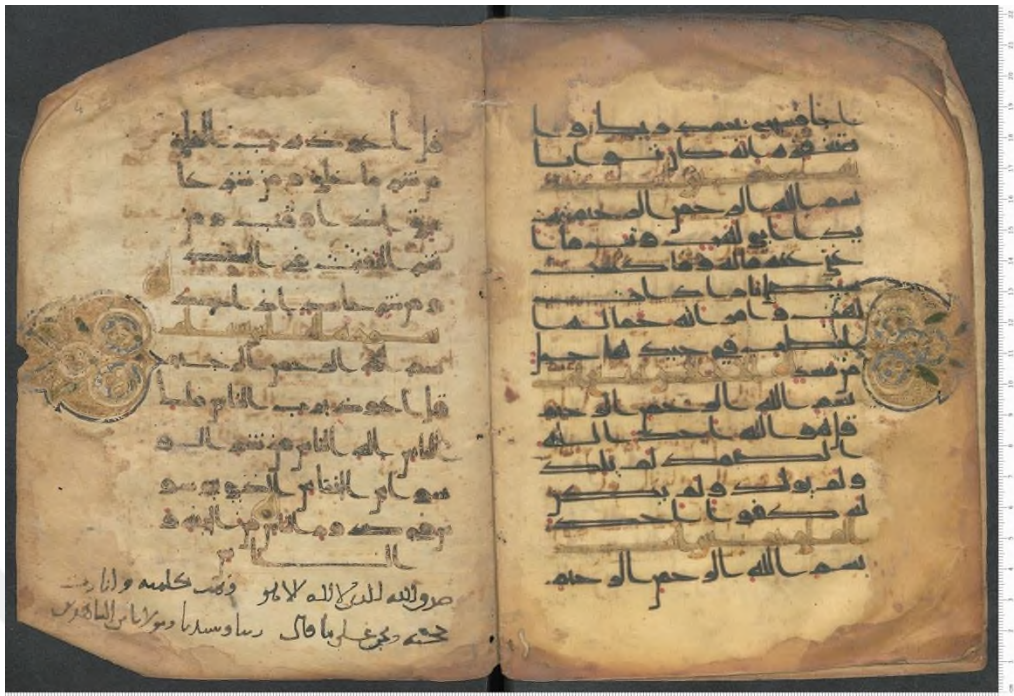 ا جا فسبح بحمد ربك وا
ستغفره انه كان توابا
بسم الله الرحمن الرحيم تبت
يدا ابي لهب وتب ما ا
غنى عنه ماله وما كسب
سيصلى نارا ذات
لهب وامراته حمالة ا
لحطب في جيدها حبل
من مسد
بسم الله الرحمن الرحيم
قل هو الله احد الله
الصمد لم يلد
ولم يولد ولم يكن
له كفوا احد
بسم الله الرحمن الرحيم
قل اعوذ برب الفلق
من شر ما خلق ومن شر غا
سق اذا وقب ومن
شر النفثت في العقد
ومن شر حاسد اذا حسد
بسم الله الرحمن الرحيم
قل اعوذ برب الناس ملك
الناس اله الناس من شر الو
سواس الخناس الذي يوسو
س في صدور الناس من الجنة و
الناس
صدق الله الذي لا اله الا هو وتمت كلمته
ونحن على ما قال ربنا وسيدنا ومولانا من الشاهدين